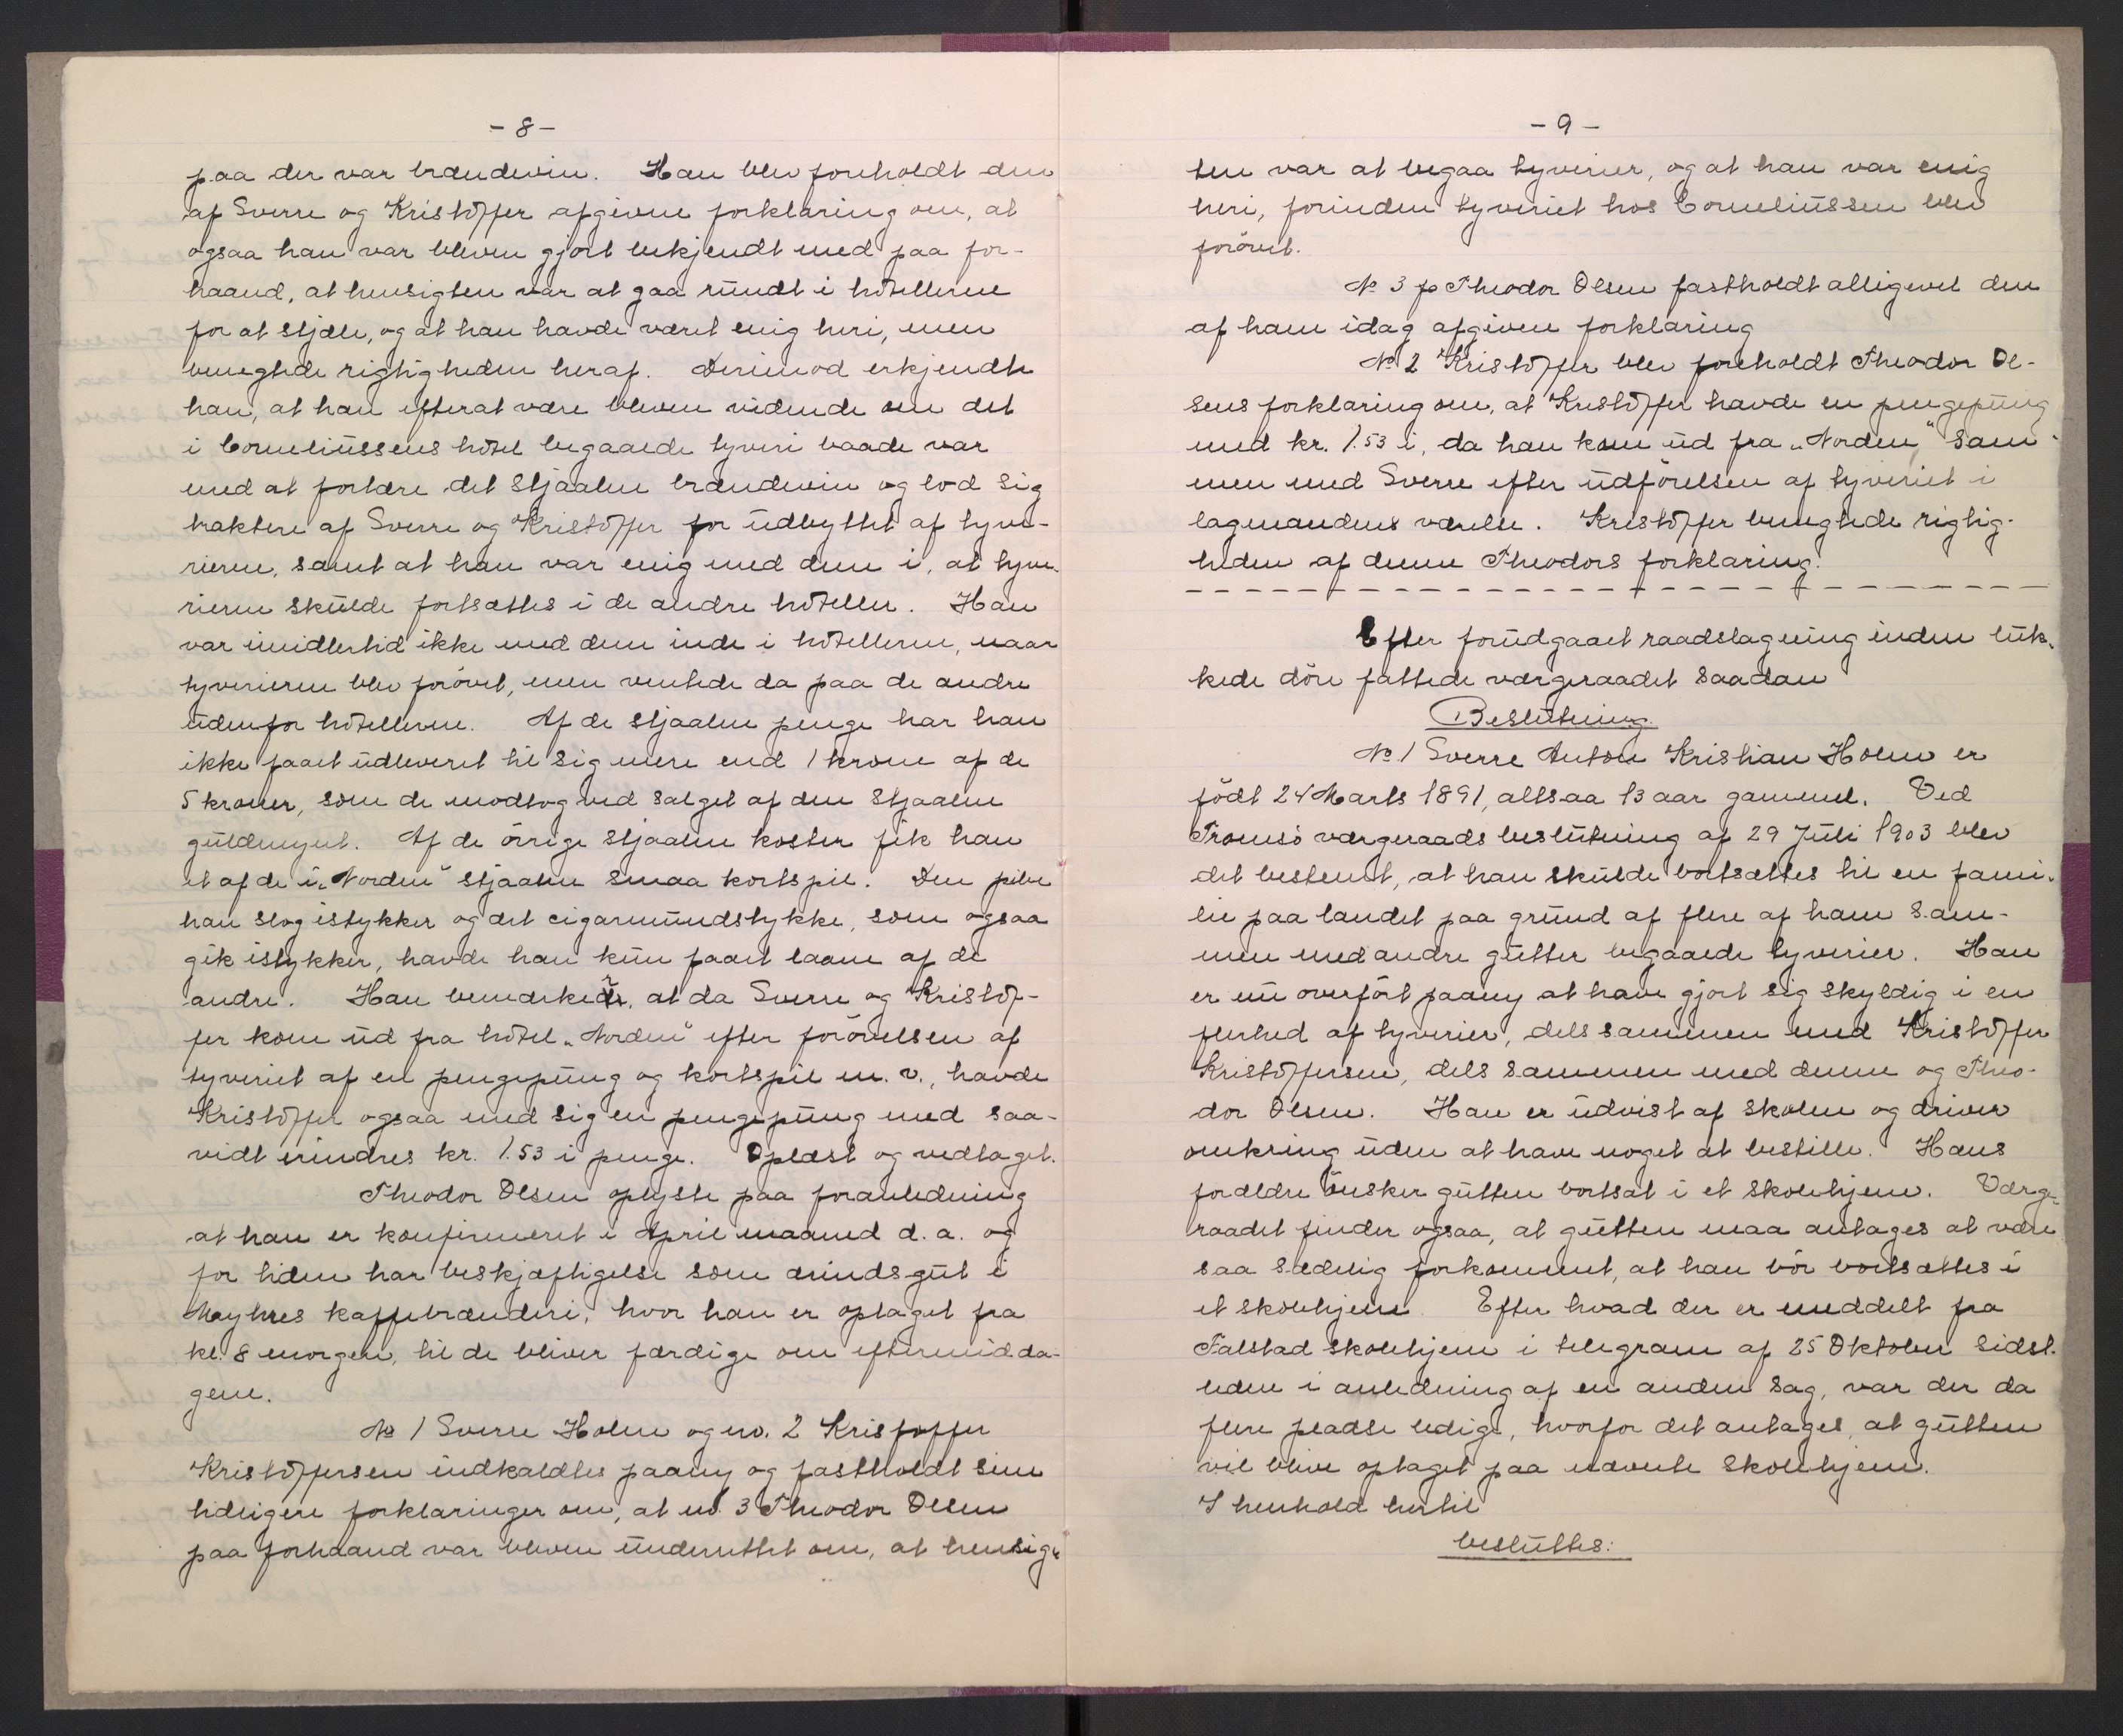 - 8 -
paa der var brændevin. Han blev foreholdt den
af Sverre og Kristoffer afgivne forklaring om, at
ogsaa han var bleven gjort bekjendt med paa for-
haand, at hensigten var at gaa rundt i hotellerne
for at stjæle, og at han havde været enig heri, men
benegtede rigtigheden heraf. Derimod erkjendte
han, at han efterat være bleven vidende om det
i Corneliussens hotel begaaede tyveri baade var
med at fortære det stjaalne brændevin og lod sig
traktere af Sverre og Kristoffer for udbyttet af tyve-
rierne, samt at han var enig med dem i, at tyve-
rierne skulde fortsættes i de andre hoteller. Han
var imidlertid ikke med dem inde i hotellerne, naar
tyverierne blev forövet, men ventede da paa de andre
udenfor hotellerne. Af de stjaalne penge har han
ikke faaet udleveret til sig mere end 1 krone af de
5 kroner, som de modtog ved salget af den stjaalne
guldmynt. Af de övrige stjaalne koster fik han
et af de i "Norden" stjaalne smaa kortspil. Den pibe
han slog istykker og det cigarmundstykke, som ogsaa
gik istykker, havde han kun faaet laane af de
andre. Han bemærkede, at da Sverre og Kristof-
fer kom ud fra hotel "Norden" efter forövelsen af
tyveriet af en pengepung og kortspil m. v., havde
Kristoffer ogsaa med sig en pengepung med saa-
vidt erindres kr. 1.53 i penge. Oplæst og vedtaget.
Theodor Olsen oplyste paa foranledning
at han er konfirmeret i April maaned d. a. og
for tiden har beskjæftigelse som ærindsgut i
Meyhres kaffebrænderi, hvor han er optaget fra
kl. 8 morgen, til de bliver færdige om eftermidda-
gene.
No 1 Sverre Holm og no. 2 Kristoffer
Kristoffersen indkaldtes paany og fastholdt sine
tidligere forklaringer om, at no. 3 Theodor Olsen
paa forhaand var bleven underrettet om, at hensig-
- 9 -
ten var at begaa tyverier, og at han var enig
heri, forinden tyveriet hos Corneliussen blev
forövet.
No 3 Theodor Olsen fastholdt alligevel den
af ham idag afgivne forklaring
No 2 Kristoffer blev foreholdt Theodor Ol-
sens forklaring om, at Kristoffer havde en pengepung
med kr. 1.53 i, da han kom ud fra "Norden" sam-
men med Sverre efter udförelsen af tyveriet i
lagmandens værelse. Kristoffer benegtede rigtig-
heden af denne Theodors forklaring.
Efter forudgaaet raadslagning inden luk-
kede döre fattede værgeraadet saadan
Beslutning
No 1 Sverre Anton Kristian Holm er
födt 24 Marts 1891, altsaa 13 aar gammel. Ved
Tromsö værgeraads beslutning af 29 Juli 1903 blev
det bestemt, at han skulde bortsættes til en fami-
lie paa landet paa grund af flere af ham sam-
men med andre gutter begaaede tyverier. Han
er nu overfört paany at have gjort sig skyldig i en
flerhed af tyverier, dels sammen med Kristoffer
Kristoffersen, dels sammen med denne og Theo-
dor Olsen. Han er udvist af skolen og driver
omkring uden at have noget at bestille. Hans
forældre önsker gutten bortsat i et skolehjem. Værge-
raadet finder ogsaa, at gutten maa antages at være
saa sædelig forkommet, at han bör bortsættes i
et skolehjem. Efter hvad der er meddelt fra
Falstad skolehjem i telegram af 25 Oktober sidst-
leden i anledning af en anden sag, var der da
flere pladse ledige, hvorfor det antages, at gutten
vil blive optaget paa nævnte skolehjem.
I henhold hertil
besluttes: